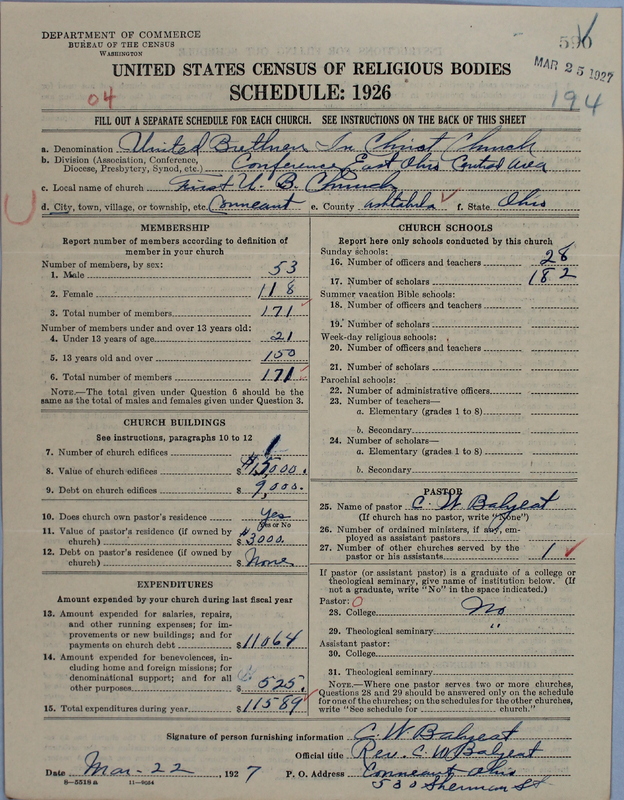 DEPARTMENT OF COMMERCE
BUREAU OF THE CENSUS
WASHINGTON
590
MAR 25 1927
UNITED STATES CENSUS OF RELIGIOUS BODIES
04
SCHEDULE: 1926
194
FILL OUT A SEPARATE SCHEDULE FOR EACH CHURCH. SEE INSTRUCTIONS ON THE BACK OF THIS SHEET
a. Denomination United Brethren In Christ Church
b. Division (Association, Conference, Diocese, Presbytery, Synod, etc.) Conference East Ohio Central Area
c. Local name of church First U. B. Church
d. City, town, village, or township, etc. Conneaut e. County Ashtabula f. State Ohio
MEMBERSHIP
Report number of members according to definition of
member in your church
Number of members, by sex:
1. Male 53
2. Female 118
3. Total number of members 171
Number of members under and over 13 years old:
4. Under 13 years of age 21
5. 13 years old and over 150
6. Total number of members 171
NOTE.—The total given under Question 6 should be
same as the total of males and females given under Question 3.
CHURCH BUILDINGS
See instructions, paragraphs 10 to 12
7. Number of church edifices 1
8. Value of church edifices $ 15000.
9. Debt on church edifices $ 9,000.
10. Does church own pastor's residence Yes
Yes or No
11. Value of pastor's residence (if owned by
church) $ 3000.
12. Debt on pastor's residence (if owned by
church) $ None
EXPENDITURES
Amount expended by your church during last fiscal year
13. Amount expended for salaries, repairs,
and other running expenses; for im-
provements or new buildings; and for
payments on church debt $ 11064
14. Amount expended for benevolences, in-
cluding home and foreign missions; for
denominational support; and for all
other purposes $ 525.
15. Total expenditures during year $ 11589
CHURCH SCHOOLS
Report here only schools conducted by this church
Sunday schools:
16. Number of officers and teachers 28
17. Number of scholars 182
Summer vacation Bible schools:
18. Number of officers and teachers
19. Number of scholars
Week-day religious schools:
20. Number of officers and teachers
21. Number of scholars
Parochial schools:
22. Number of administrative officers
23. Number of teachers—
a. Elementary (grades 1 to 8)
b. Secondary
24. Number of scholars—
a. Elementary (grades 1 to 8)
b. Secondary
PASTOR
25. Name of pastor C. W. Balyeat
(If church has no pastor, write "None")
26. Number of ordained ministers, if any, em-
ployed as assistant pastors
27. Number of other churches served by the
pastor or his assistants 1
If pastor (or assistant pastor) is a graduate of a college or
theological seminary, give name of institution below. (If
not a graduate, write "No" in the space indicated.)
Pastor: 0
28. College No
29. Theological seminary "
Assistant pastor:
30. College
31. Theological seminary
NOTE.—Where one pastor serves two or more churches,
Questions 28 and 29 should be answered only on the schedule
for one of the churches; on the schedules for the other churches,
write "See schedule for church."
Signature of person furnishing information C. W. Balyeat
Official title Rev. C. W. Balyeat
Date Mar-22, 1927 P. O. Address Conneaut Ohio
530 Sherman St
8—5518 a 11—9054